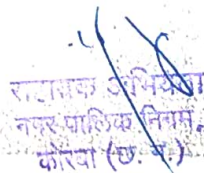 सहायक अभियन्ता
नगर पालिक निगम,
कोरबा (छ. ग.)